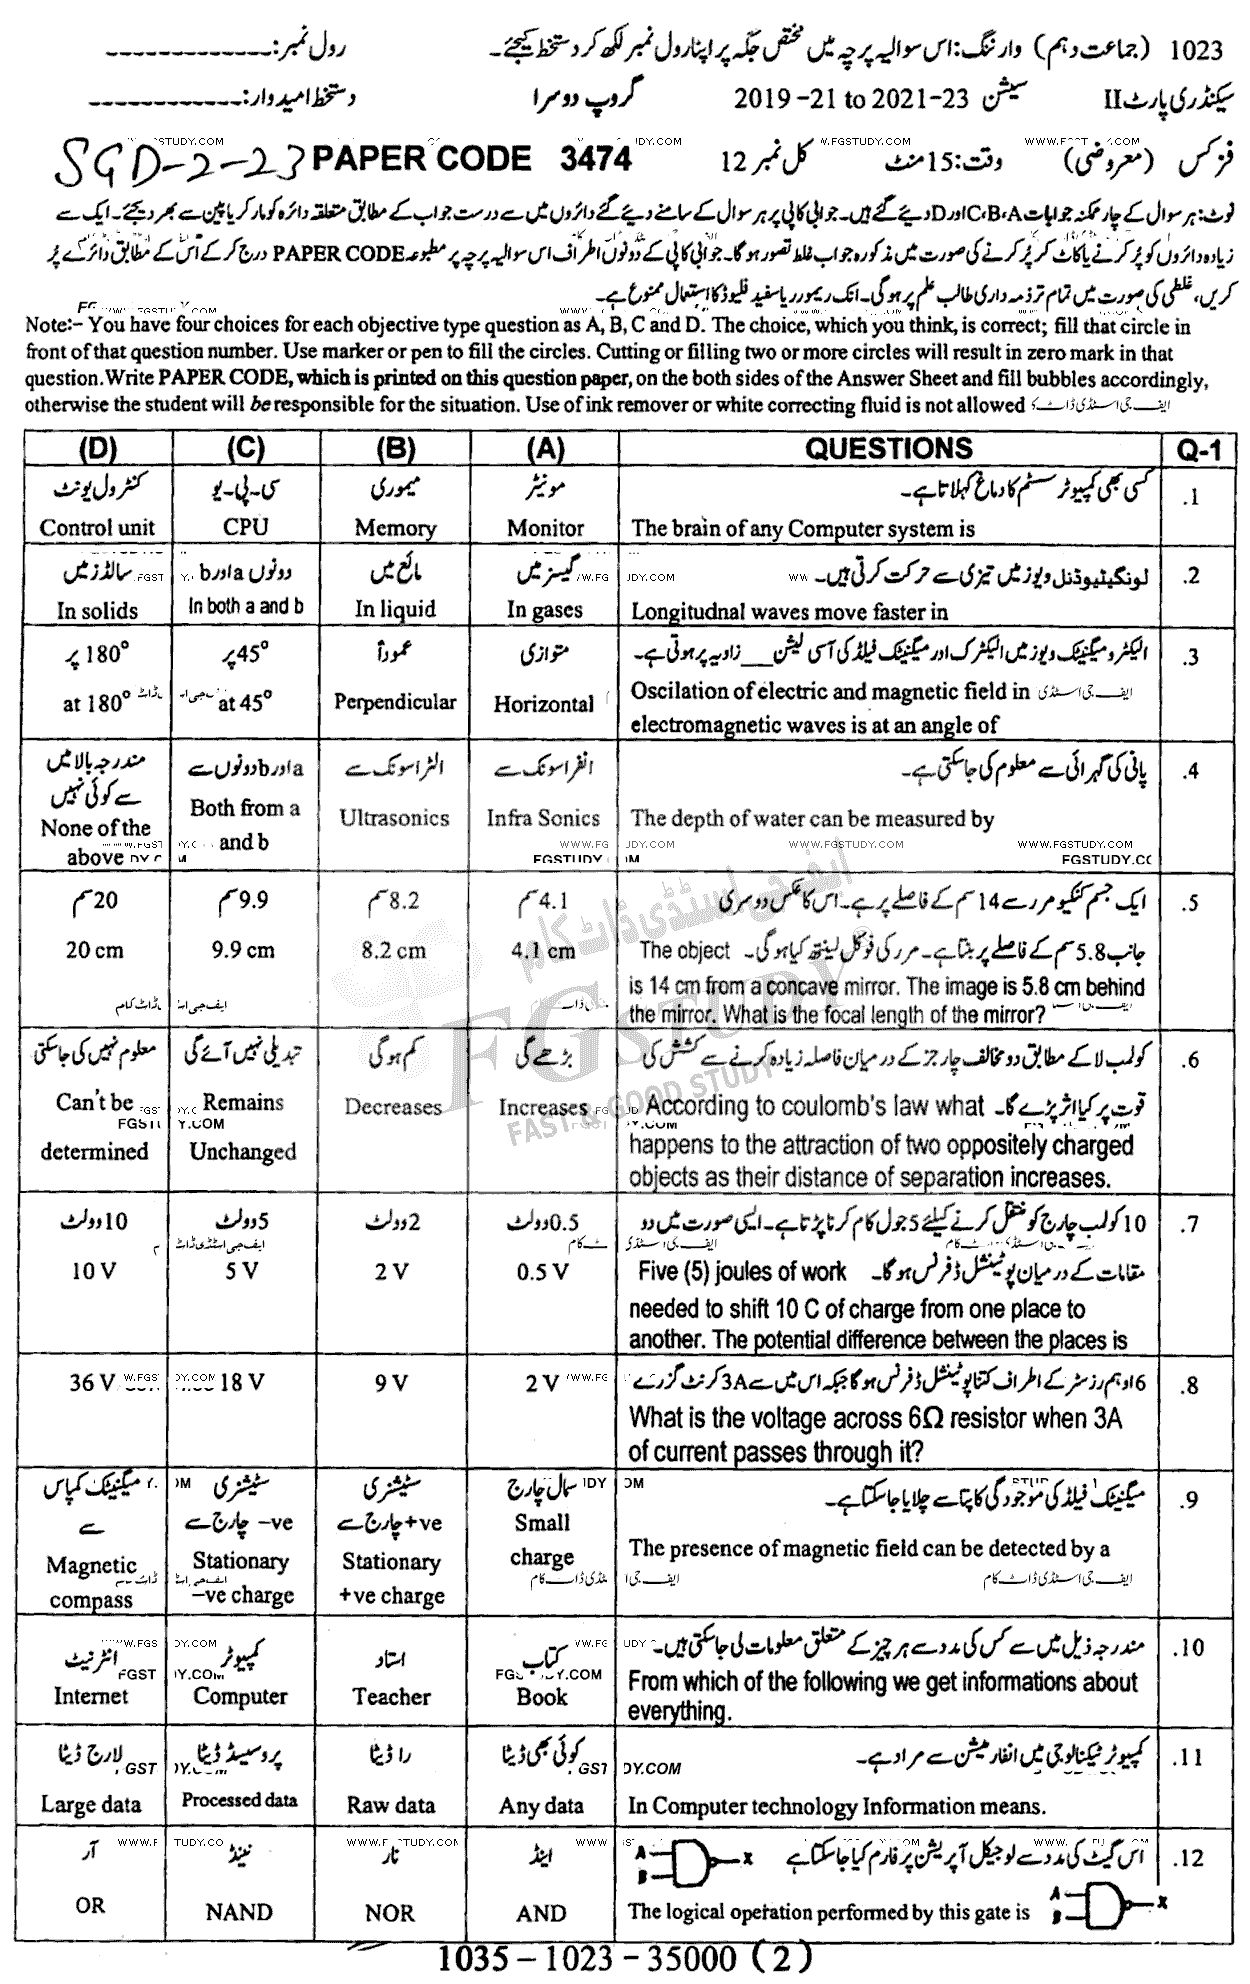 1023 (جماعت دہم) وارننگ: اس سوالیہ پرچہ میں مختص جگہ پر اپنا رول نمبر لکھ کر دستخط کیجئے۔ رول نمبر: -------------
سیکنڈری پارٹ II سیشن 2019-21 to 2021-23 گروپ دوسرا دستخط امیدوار: -------------
فزکس (معروضی) وقت: 15 منٹ کل نمبر 12 PAPER CODE 3474 SGD-2-23
نوٹ: ہر سوال کے چار ممکنہ جوابات A، B، C اور D دیئے گئے ہیں۔ جوابی کاپی پر ہر سوال کے سامنے دیئے گئے دائروں میں سے درست جواب کے مطابق متعلقہ دائرہ کو مارکر یا پین سے بھر دیجئے۔ ایک سے
زیادہ دائروں کو پُر کرنے یا کاٹ کر پُر کرنے کی صورت میں مذکورہ جواب غلط تصور ہو گا۔ جوابی کاپی کے دونوں اطراف اس سوالیہ پرچہ پر مطبوعہ PAPER CODE درج کر کے اس کے مطابق دائرے پُر
کریں، غلطی کی صورت میں تمام تر ذمہ داری طالب علم پر ہوگی۔ انک ریموور یا سفید فلیوڈ کا استعمال ممنوع ہے۔
Note:- You have four choices for each objective type question as A, B, C and D. The choice, which you think, is correct; fill that circle in
front of that question number. Use marker or pen to fill the circles. Cutting or filling two or more circles will result in zero mark in that
question.Write PAPER CODE, which is printed on this question paper, on the both sides of the Answer Sheet and fill bubbles accordingly,
otherwise the student will be responsible for the situation. Use of ink remover or white correcting fluid is not allowed
(D) (C) (B) (A) QUESTIONS Q-1
کنٹرول یونٹ سی-پی-یو میموری مونیٹر کسی بھی کمپیوٹر سسٹم کا دماغ کہلاتا ہے۔ .1
Control unit CPU Memory Monitor The brain of any Computer system is
سالڈز میں دونوں a اور b مائع میں گیسز میں لونگیٹیوڈنل ویوز میں تیزی سے حرکت کرتی ہیں۔ .2
In solids In both a and b In liquid In gases Longitudnal waves move faster in
180° پر 45° پر عموداً متوازی الیکٹرو میگنیٹک ویوز میں الیکٹرک اور میگنیٹک فیلڈ کی آسی لیشن ___ زاویہ پر ہوتی ہے۔ .3
at 180° at 45° Perpendicular Horizontal Oscilation of electric and magnetic field in
electromagnetic waves is at an angle of
مندرجہ بالا میں سے کوئی نہیں a اور b دونوں سے الٹراسونک سے انفراسونک سے پانی کی گہرائی سے معلوم کی جاسکتی ہے۔ .4
None of the above Both from a and b Ultrasonics Infra Sonics The depth of water can be measured by
20 سم 9.9 سم 8.2 سم 4.1 سم ایک جسم کنکیو مرر سے 14 سم کے فاصلے پر ہے۔ اس کا عکس دوسری .5
20 cm 9.9 cm 8.2 cm 4.1 cm جانب 5.8 سم کے فاصلے پر بنتا ہے۔ مرر کی فوکل لینتھ کیا ہوگی۔ The object
is 14 cm from a concave mirror. The image is 5.8 cm behind
the mirror. What is the focal length of the mirror?
معلوم نہیں کی جاسکتی تبدیلی نہیں آئے گی کم ہوگی بڑھے گی کولمب لا کے مطابق دو مخالف چارجز کے درمیان فاصلہ زیادہ کرنے سے کشش کی .6
Can't be determined Remains Unchanged Decreases Increases قوت پر کیا اثر پڑے گا۔ According to coulomb's law what
happens to the attraction of two oppositely charged
objects as their distance of separation increases.
10 وولٹ 5 وولٹ 2 وولٹ 0.5 وولٹ 10 کولمب چارج کو منتقل کرنے کیلئے 5 جول کام کرنا پڑتا ہے۔ ایسی صورت میں دو .7
10 V 5 V 2 V 0.5 V مقامات کے درمیان پوٹینشل ڈفرنس ہو گا۔ Five (5) joules of work
needed to shift 10 C of charge from one place to
another. The potential difference between the places is
36 V 18 V 9 V 2 V 6 اوہم رزسٹر کے اطراف کتنا پوٹینشل ڈفرنس ہو گا جبکہ اس میں سے 3A کرنٹ گزرے .8
What is the voltage across 6Ω resistor when 3A
of current passes through it?
میگنیٹک کمپاس سے سٹیشنری -ve چارج سے سٹیشنری +ve چارج سے سمال چارج میگنیٹک فیلڈ کی موجودگی کا پتا سے چلایا جاسکتا ہے۔ .9
Magnetic compass Stationary -ve charge Stationary +ve charge Small charge The presence of magnetic field can be detected by a
انٹرنیٹ کمپیوٹر استاد کتاب مندرجہ ذیل میں سے کس کی مدد سے ہر چیز کے متعلق معلومات لی جاسکتی ہیں۔ .10
Internet Computer Teacher Book From which of the following we get informations about
everything.
لارج ڈیٹا پروسیسڈ ڈیٹا را ڈیٹا کوئی بھی ڈیٹا کمپیوٹر ٹیکنالوجی میں انفارمیشن سے مراد ہے۔ .11
Large data Processed data Raw data Any data In Computer technology Information means.
آر نینڈ نار اینڈ اس گیٹ کی مدد سے لوجیکل آپریشن پرفارم کیا جاسکتا ہے A B X .12
OR NAND NOR AND The logical operation performed by this gate is A B X
1035 – 1023 – 35000 (2)
ایف جی اسٹڈی ڈاٹ کام
FGSTUDY
FAST & GOOD STUDY
WWW.FGSTUDY.COM